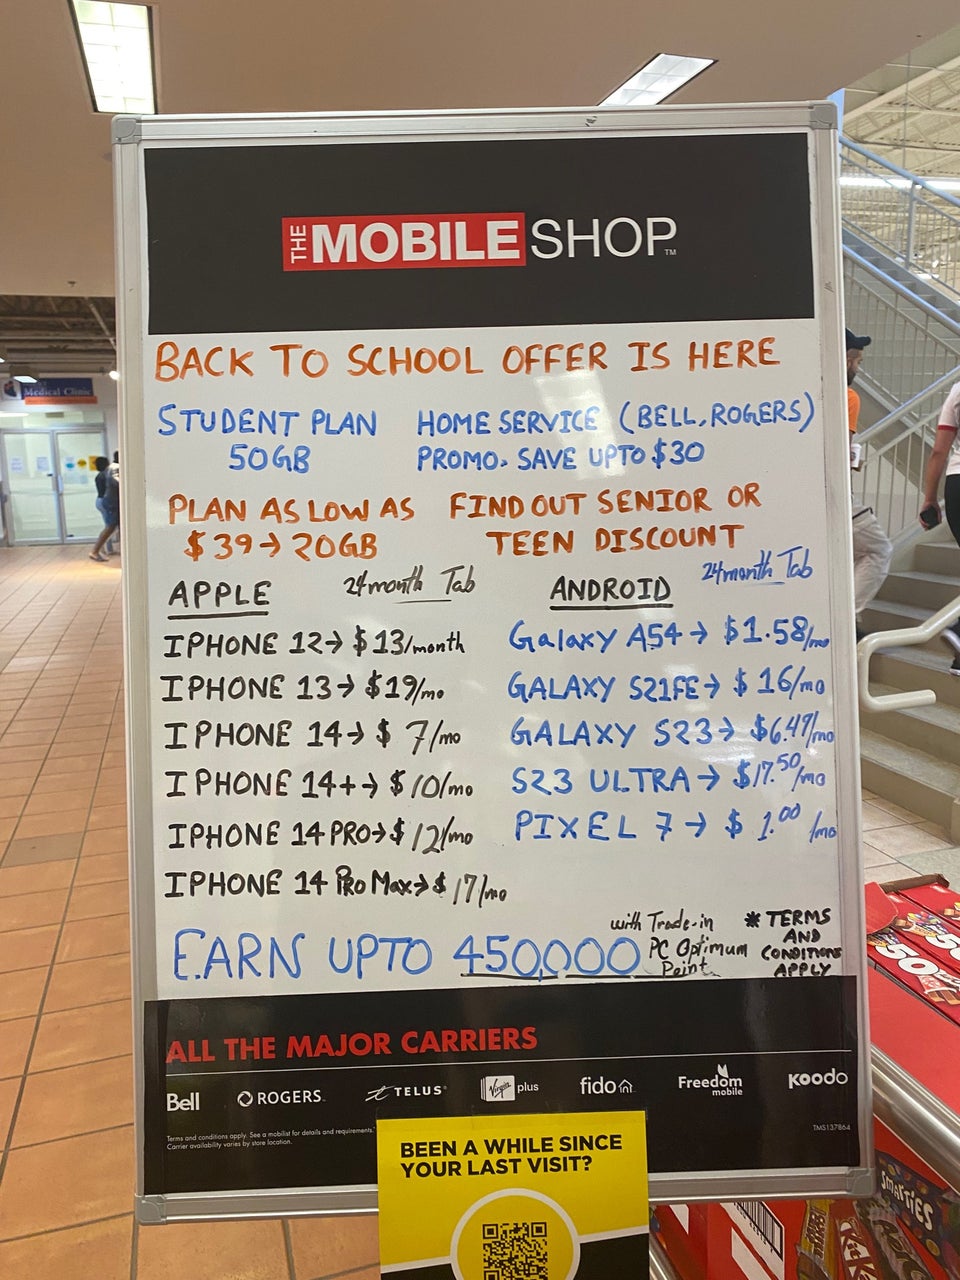 THE MOBILE SHOP™
BACK TO SCHOOL OFFER IS HERE
STUDENT PLAN
50GB
HOME SERVICE (BELL, ROGERS)
PROMO. SAVE UPTO $30
PLAN AS LOW AS
$39→20GB
FIND OUT SENIOR OR
TEEN DISCOUNT
APPLE 24month Tab
IPHONE 12→$13/month
IPHONE 13→$19/mo
IPHONE 14→$ 7/mo
IPHONE 14+→$10/mo
IPHONE 14 PRO→$ 12/mo
IPHONE 14 PRO Max→$ 17/mo
ANDROID 24month Tab
Galaxy A54→$1.58/mo
GALAXY S21FE→$16/mo
GALAXY S23→$6.47/mo
S23 ULTRA→$17.50/mo
PIXEL 7→$ 1.00/mo
EARN UPTO 450,000
with Trade-in
PC Optimum
Point
* TERMS
AND
CONDITIONS
APPLY
ALL THE MAJOR CARRIERS
Bell ROGERS™ TELUS® Virgin plus fido Freedom mobile koodo
Terms and conditions apply. See a mobilist for details and requirements.
Carrier availability varies by store location.
TMS137864
BEEN A WHILE SINCE
YOUR LAST VISIT?
Medical Clinic
50
SMARTIES
KitKat